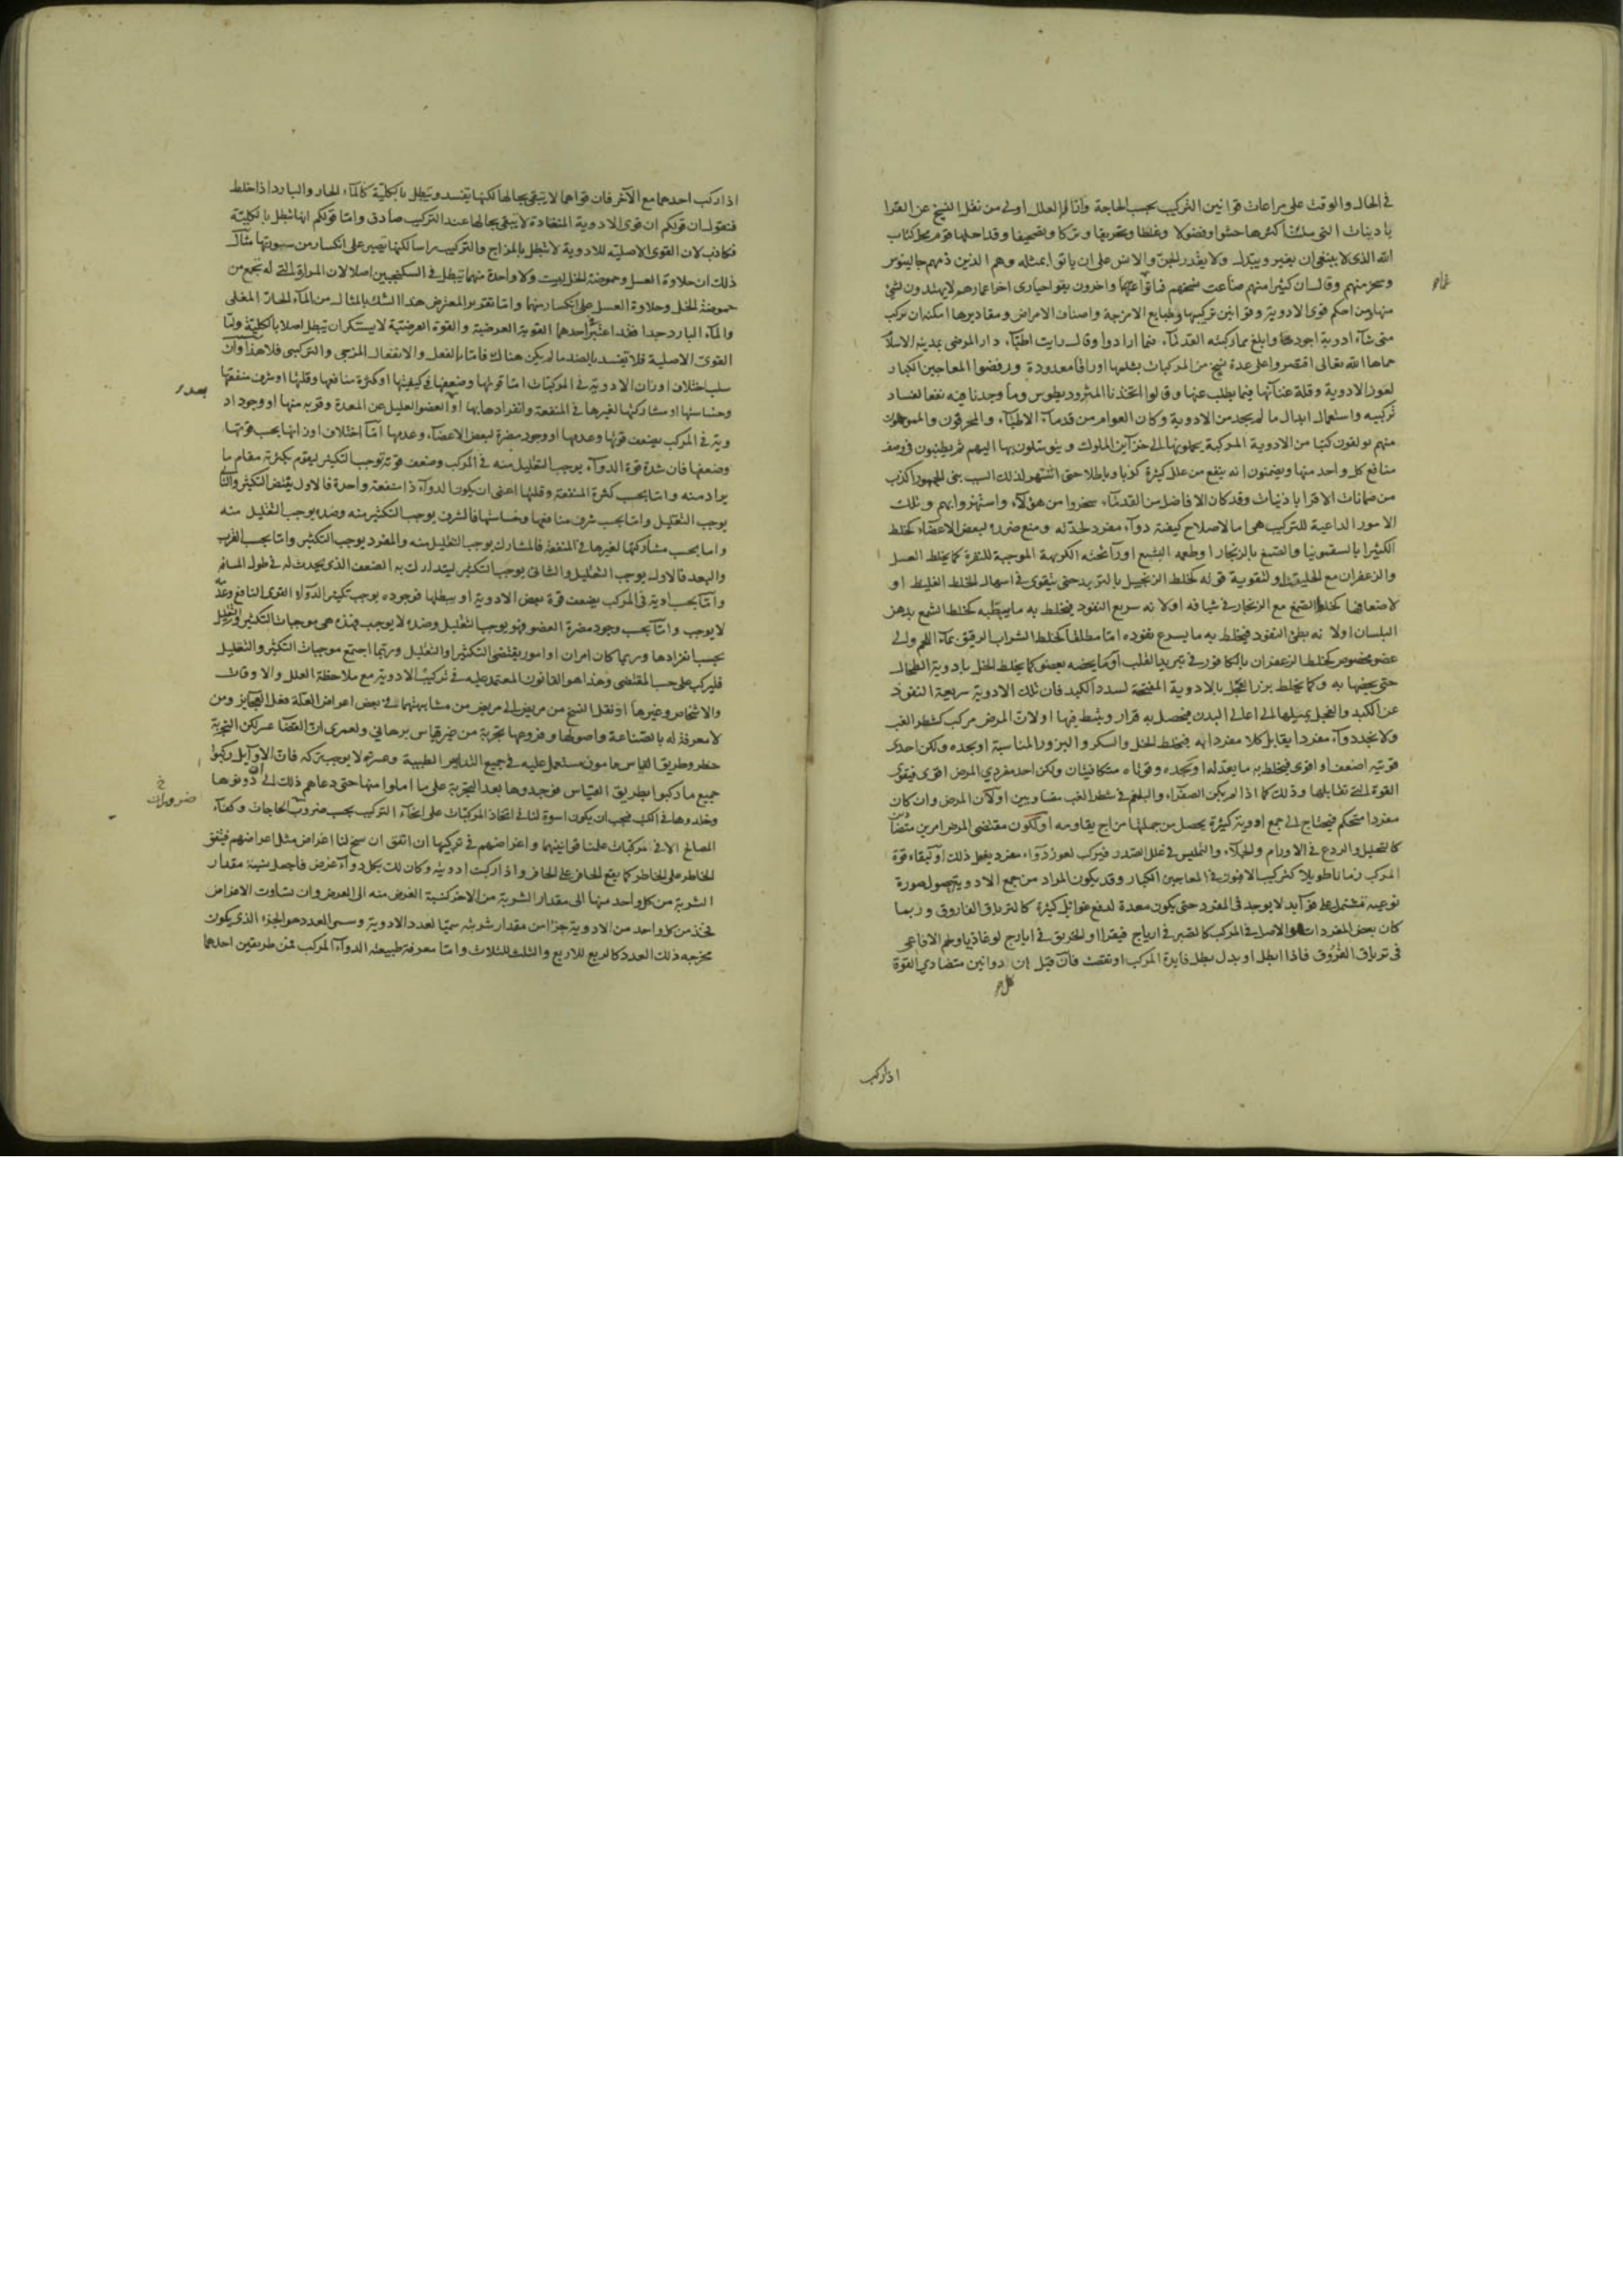 في الحال والوقت على مراعات قوانين التركيب بحسب الحاجة وازالة العلل اولى من نقل النسخ عن القرا
باذينات التي سلئت اكثرها حشوا وفضولا وغلطا وتحريفا وتركا وتصحيفا وقد احلها قوم محل كتاب
الله الذي لا ينبغي ان يغير ويبدل ولا يقدر الجن والانس على ان ياتوا بمثله وهم الذين ذمهم جالينوس
وسخر منهم وقال ان كثيرا منهم ضاعت نسخهم فماتوا غما واخرون بقوا حيارى اخر اعمارهم لا يهتدون لشئ
منها ومن احكم قوى الادوية وقوانين تركيبها وطبايع الامزجة واصناف الامراض ومقاديرها امكنه ان يركب
متى شاء ادوية اجود وابلغ مما ركبته القدماء فيما ارادوا وقال رايت اطباء دار المرضى بمدينة الاسلام
حماها الله تعالى اقتصروا على عدة نسخ من المركبات بثلها اوراقا معدودة ورفضوا المعاجين الكبار
لعوز الادوية وقلة عنائها فيما يطلب عنها وقالوا اتخذنا المثروديطوس وما وجدنا فيه نفعا لفساد
تركيبه واستعمال ابدال ما لم يجد من الادوية وكان العوام من قدماء الاطباء والمخرقون والمموهون
منهم يولفون كتبا من الادوية المركبة يحملونها الى خزاين الملوك ويتوسلون بها اليهم ثم يطنبون في وصف
منافع كل واحد منها ويضمنون انه ينفع من علل كثيرة كذبا وباطلا حتى اشتهر لذلك السبب بين الجمهور اكذب
من ضمانات الاقراباذينات وقد كان الافاضل من القدماء سخروا من هؤلاء واستهزوا بهم وتلك
الامور الداعية للتركيب هي اما لاصلاح كيفية دواء مفرد لحدته ومنع ضرره لبعض الاعضاء كخلط
الكثيرا بالسقمونيا والصمغ بالزنجار او طعمه البشيع او رائحته الكريهة الموجبة للنفرة كما يخلط العسل
والزعفران مع او لتقوية قوته كخلط الزنجبيل بالتربد حتى يقوى في اسهال الخلط الغليظ او
لاضعافها كخلط الصمغ مع الزنجار في شيافه او لانه سريع النفوذ فيخلط به ما يبطئه كخلط الشمع بدهن
البلسان او لانه بطئ النفوذ فيخلط به ما يسرع نفوذه اما مطلقا كخلط الشراب الرقيق بماء اللحم والى
عضو مخصوص كخلط الزعفران بالكافور في تبريد القلب او ما يخصه بعضو كما يخلط الخل بادوية الطحال
حتى يخصها به وكما يخلط بزر الفجل بالادوية المفتحة لسدد الكبد فان تلك الادوية سريعة النفوذ
عن الكبد والفجل يميلها الى اعالي البدن فيحصل به قرار وينشط فيها او لان المرض مركب كشطر الغب
ولا نجد دواء مفردا يقابل كلا مفرداته فيخلط الخل والسكر والبزور المناسبة او يجده ولكن احدى
قوتيه اضعف او اقوى فيخلط به ما يعدله او نجده وقوتاه متكافئتان ولكن احد مفردي المرض اقوى فيقوى
القوة التي تقابلها وذلك كما اذا لم يكن الصفراء والبلغم في شطر الغب متساويين او لان المرض وان كان
مفردا مستحكم فيحتاج الى جمع ادوية كثيرة يحصل من جملتها مزاج يقاومه او لكون مقتضى المرض امرين متضادين
كالتحليل والردع في الاورام والجلاء والتمليس في علل الصدر فيركب لعوز دواء مفرد يفعل ذلك او لبقاء قوة
المركب زمانا طويلا كتركيب الافيون في المعاجين الكبار وقد يكون المراد من جمع الادوية حصول صورة
نوعية تشتمل على فوايد لا يوجد في المفرد حتى يكون معدة لدفع غوائل كثيرة كالترياق الفاروق وربما
كان بعض المفردات هو الاصل في المركب كالصبر في ايارج فيقرا والخربق في ايارج لوغاذيا ولحم الافاعي
في ترياق الفاروق فاذا ابطل او بدل بطل فايدة المركب او نقصت فان قيل ان دوائين متضادي القوة
اذا ركب
اذا ركب احدهما مع الآخر فان قواهما لا يبقى بحالها لكنها يفسد ويبطل بالكلية كالماء الحار والبارد اذا خلط
فنقول ان قولكم ان قوى الادوية المتضادة لا يبقى بحالها عند التركيب صادق واما قولكم انها تبطل بالكلية
فكاذب لان القوى الاصلية للادوية لا تبطل بالمزاج والتركيب راسا لكنها تصير على انكسار من سورتها مثال
ذلك ان حلاوة العسل وحموضة الخل ليست ولا واحدة منهما تبطل في السكنجبين اصلا لان المرارة التي له تجمع من
حموضة الخل وحلاوة العسل على انكسار منهما واما تقرير المعترض هذا الشك بالمثال من الماء الحار المغلى
والماء البارد جدا فقد اعتبر احدهما القوية العرضية والقوة العرضية لا يستنكر ان تبطل اصلا بالكلية واما
القوى الاصلية فلا تفسد بالضد ما لم يكن هناك فاما بالفعل والانفعال المزجي والتركيبي فلا هذا وان
سلب اختلاف اوزان الادوية في المركبات اما قوتها وضعفها في كيفيتها او كثرة منافعها وقلتها او شرف منفعتها
وخساستها او مشاركتها لغيرها في المنفعة وانفرادها بها او العضو العليل عن المعدة وقربه منها او وجود اد
وية في المركب يضعف قوتها وعدمها او وجود مضرة لبعض الاعضاء وعدمها اما اختلاف اوزانها بحسب قوتها
وضعفها فان شدة قوة الدواء يوجب التقليل منه في المركب وضعف قوته توجب التكثير ليقوم بكثرته مقام ما
يراد منه واما بحسب كثرة المنفعة وقلتها اعني ان يكون الدواء ذا منفعة واحدة فالاول يقتضي التكثير والثاني
يوجب التقليل واما بحسب شرف منافعها وخساستها فالشرف يوجب التكثير منه وضده يوجب التقليل منه
واما بحسب مشاركتها لغيرها في المنفعة فالمشارك يوجب التقليل منه والمفرد يوجب التكثير واما بحسب القرب
والبعد فالاول يوجب التقليل والثاني يوجب التكثير ليتدارك به الضعف الذي يحدث له في طول المسافة
واما بحسب ادوية في المركب يضعف قوة بعض الادوية او يبطلها فوجوده يوجب تكثير الدواء القوى النافع وعدمه
لا يوجب واما بحسب وجود مضرة العضو فهو يوجب التقليل وضده لا يوجب فهذه هي موجبات التكثير والتقليل
بحسب انفرادها وربما كان امران او امور يقتضي التكثير او التقليل وربما اجتمع موجبات التكثير والتقليل
فليركب على حسب المقتضى وهذا هو القانون المعتمد عليه في تركيب الادوية مع ملاحظة العلل والاوقات
والاشخاص وغيرها اذ نقل النسخ من مريض الى مريض من مشابهتهما في بعض اعراض العلة فعل العجايز ومن
لا معرفة له بالصناعة واصولها وفروعها بتجربة من غير قياس برهاني ولعمري ان القضا عسر لكن التجربة
خطر وطريق القياس مامون مستعمل عليه في جميع التدابير الطبية وعسرته لا يوجب تركه فان الاوايل ركبوا
جميع ما ركبوا بطريق القياس فوجدوها بعد التجربة على ما املوا منها حتى دعاهم ذلك الى ان دونوها
وخلدوها في الكتب فيجب ان يكون اسوة لنا في اتخاذ المركبات على انحاء التركيب بحسب ضروب الحاجات وكفاء
ضرورات
المصالح الا في مركبات علمنا قوانينها واغراضهم في تركيبها ان اتفق ان سنح لنا اغراض مثل اغراضهم فيتفق
الخاطر على الخاطر كما يقع الحافر على الحافر واذا ركبت ادوية وكان لك بكل دواء غرض فاجعل نسبة مقدار
الشربة من كل واحد منها الى مقدار الشربة من الاخر كنسبة الغرض منه الى الغرض وان تساوت الاغراض
فخذ من كل واحد من الادوية جزءا من مقدار شربته سميا لعدد الادوية وسمى العدد هو الجزء الذي يكون
مخرجه ذلك العدد كالربع للاربع والثلث للثلاث واما معرفة طبيعة الدواء المركب فمن طريقين احدهما